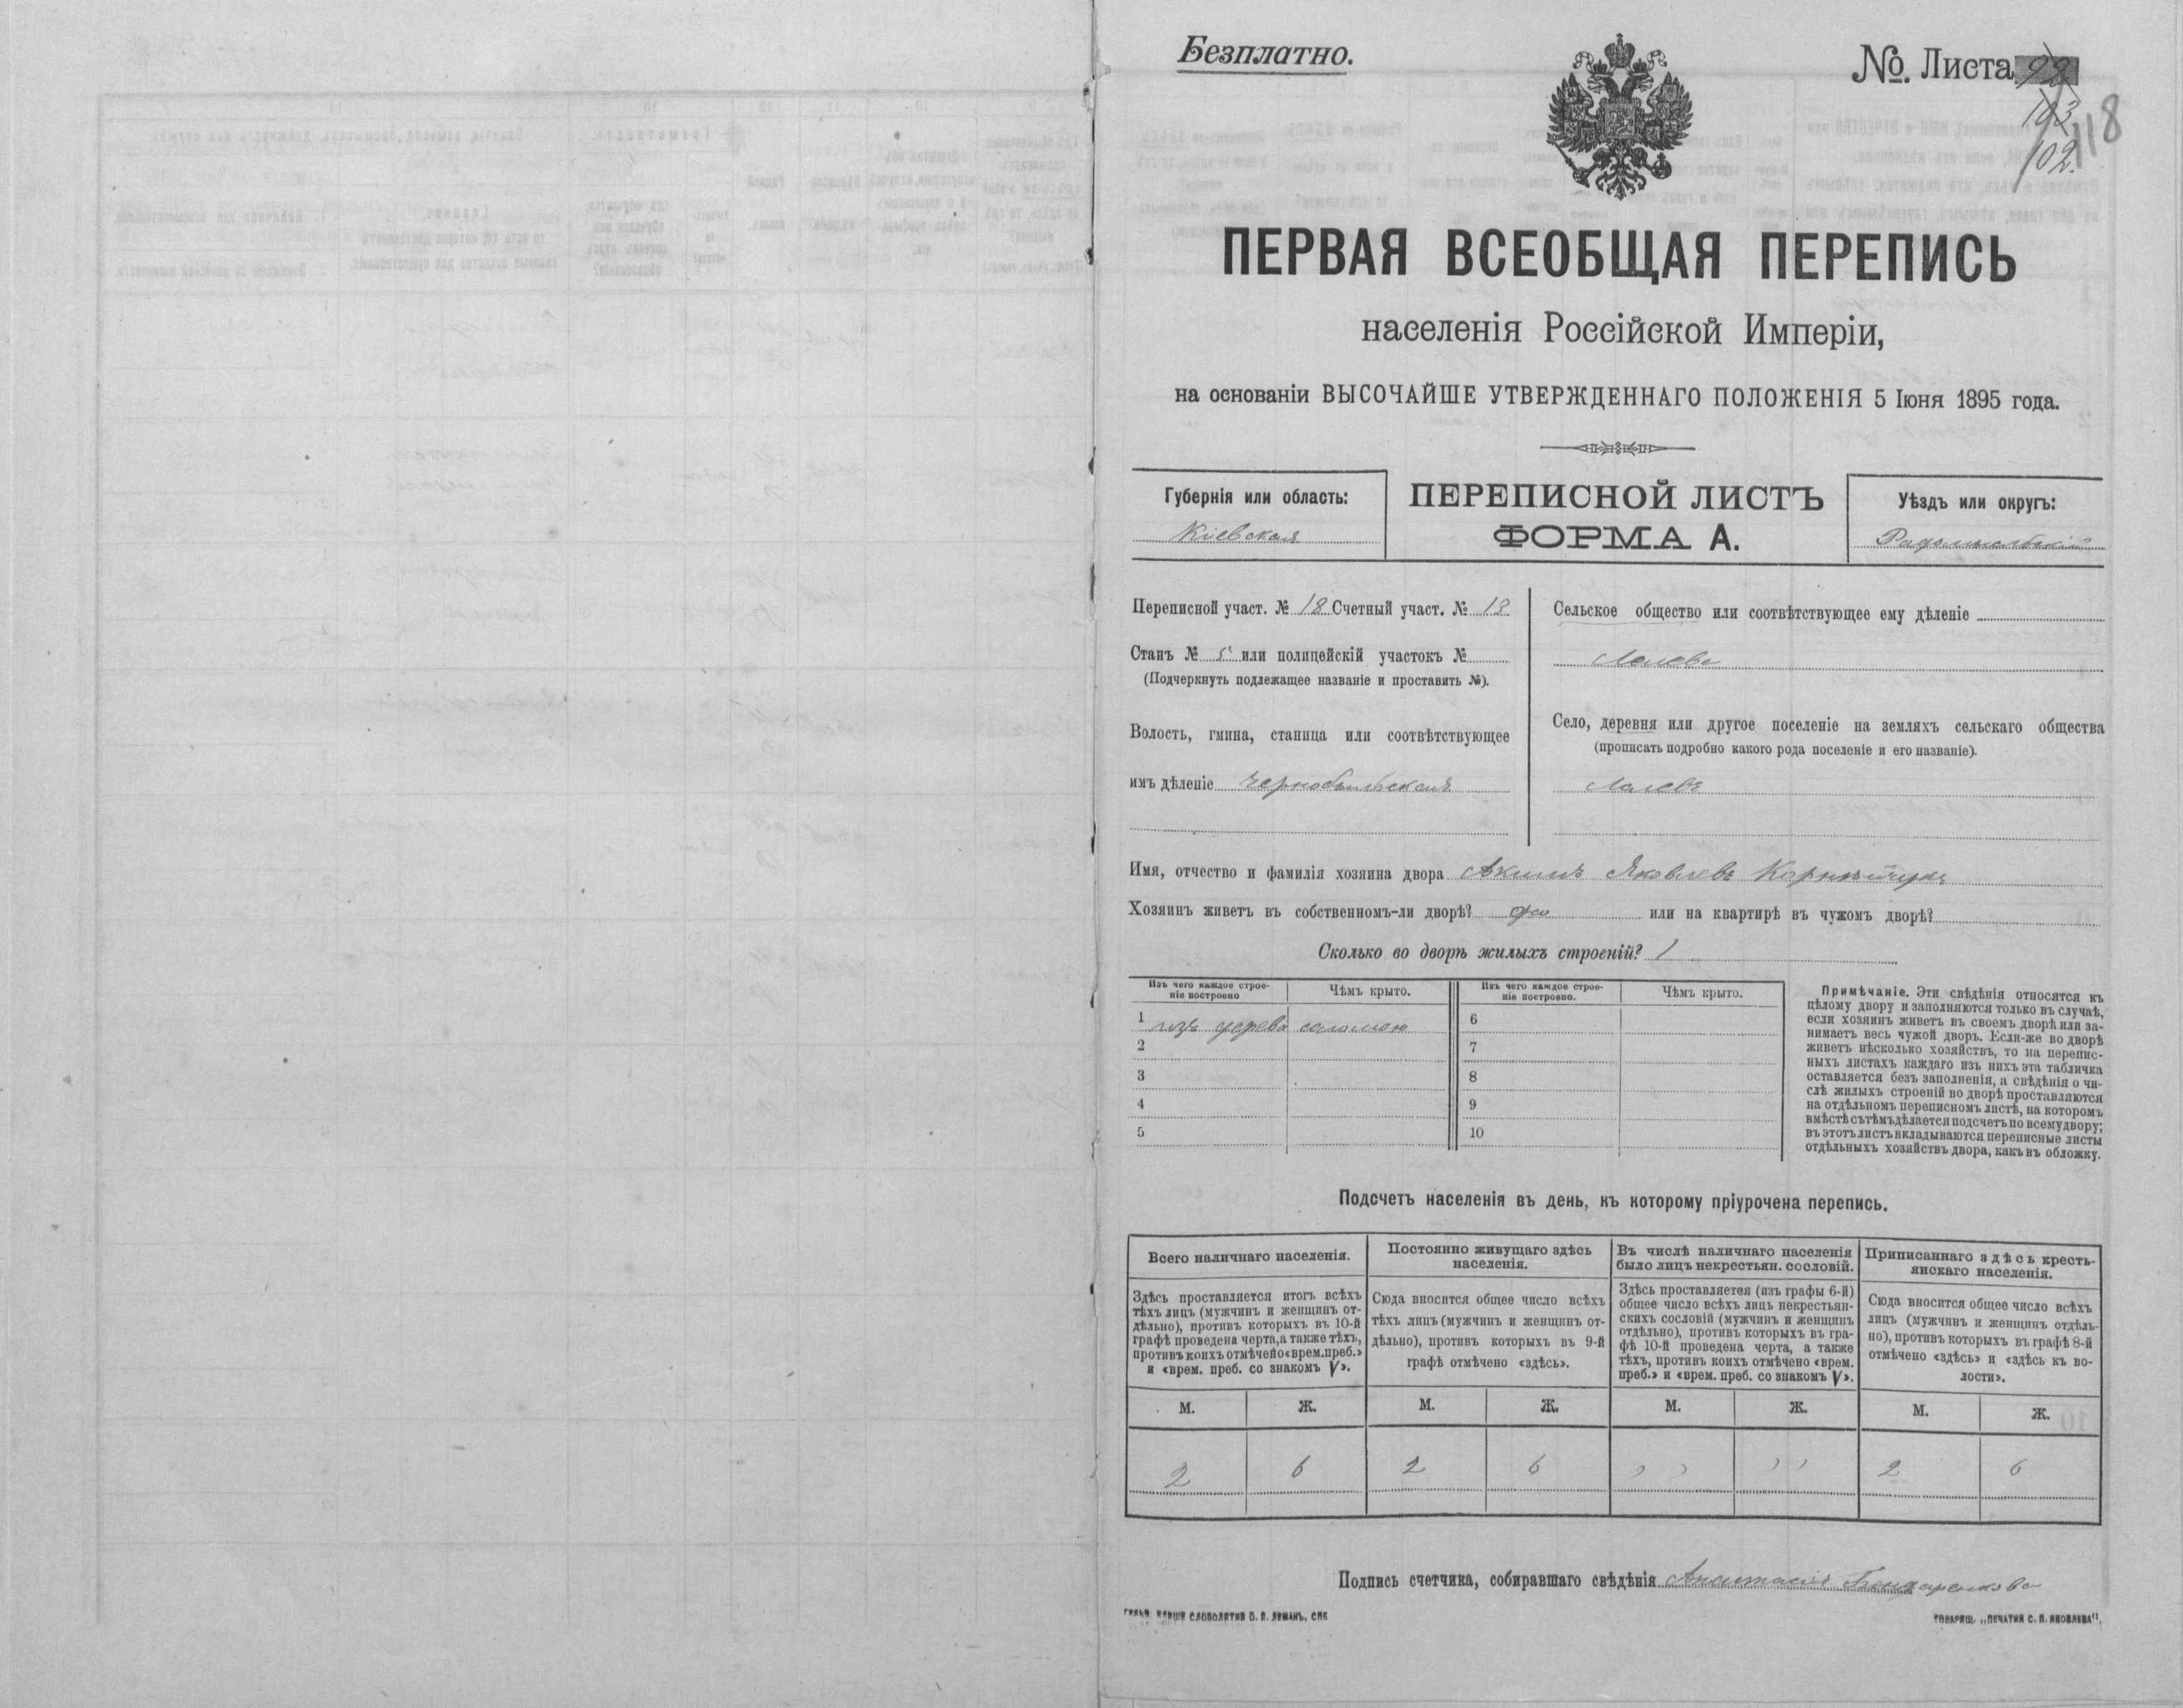 Безплатно.
№ Листа 92
103
102.
118
ПЕРВАЯ ВСЕОБЩАЯ ПЕРЕПИСЬ
населенія Россійской Имперіи,
на основаніи ВЫСОЧАЙШЕ УТВЕРЖДЕННАГО ПОЛОЖЕНІЯ 5 Іюня 1895 года.
Губернія или область:
Кіевская
ПЕРЕПИСНОЙ ЛИСТЪ
ФОРМА А.
Уѣздъ или округъ:
Радомысльскій
Переписной участ. № 18 Счетный участ. № 13
Станъ № 5 или полицейскій участокъ №
(Подчеркнуть подлежащее названіе и проставить №).
Волость, гмина, станица или соотвѣтствующее
имъ дѣленіе Чернобыльская
Сельское общество или соотвѣтствующее ему дѣленіе
Село, деревня или другое поселеніе на земляхъ сельскаго общества
(прописать подробно какого рода поселеніе и его названіе).
Имя, отчество и фамилія хозяина двора Акимъ Яковлевъ Корнѣйчукъ
Хозяинъ живетъ въ собственномъ-ли дворѣ? да или на квартирѣ въ чужомъ дворѣ?
Сколько во дворѣ жилыхъ строеній? 1
Изъ чего каждое строе-
ніе построено
Чѣмъ крыто.
Изъ чего каждое строе-
ніе построено.
Чѣмъ крыто.
1 изъ дерева соломою
2
3
4
5
6
7
8
9
10
Примѣчаніе. Эти свѣдѣнія относятся къ
цѣлому двору и заполняются только въ случаѣ,
если хозяинъ живетъ въ своемъ дворѣ или за-
нимаетъ весь чужой дворъ. Если-же во дворѣ
живетъ нѣсколько хозяйствъ, то на перепис-
ныхъ листахъ каждаго изъ нихъ эта табличка
оставляется безъ заполненія, а свѣдѣнія о чи-
слѣ жилыхъ строеній во дворѣ проставляются
на отдѣльномъ переписномъ листѣ, на которомъ
вмѣстѣ съ тѣмъ дѣлается подсчетъ по всему двору;
въ этотъ листъ вкладываются переписные листы
отдѣльныхъ хозяйствъ двора, какъ въ обложку.
Подсчетъ населенія въ день, къ которому пріурочена перепись.
Всего наличнаго населенія.
Здѣсь проставляется итогъ всѣхъ
тѣхъ лицъ (мужчинъ и женщинъ от-
дѣльно), противъ которыхъ въ 10-й
графѣ проведена черта, а также тѣхъ,
противъ коихъ отмѣчено «врем. преб.»
и «врем. преб. со знакомъ V».
Постоянно живущаго здѣсь
населенія.
Сюда вносится общее число всѣхъ
тѣхъ лицъ (мужчинъ и женщинъ от-
дѣльно), противъ которыхъ въ 9-й
графѣ отмѣчено «здѣсь».
Въ числѣ наличнаго населенія
было лицъ некрестьян. сословій.
Здѣсь проставляется (изъ графы 6-й)
общее число всѣхъ лицъ некрестьян-
скихъ сословій (мужчинъ и женщинъ
отдѣльно), противъ которыхъ въ гра-
фѣ 10-й проведена черта, а также
тѣхъ, противъ коихъ отмѣчено «врем.
преб.» и «врем. преб. со знакомъ V».
Приписаннаго здѣсь кресть-
янскаго населенія.
Сюда вносится общее число всѣхъ
лицъ (мужчинъ и женщинъ отдѣль-
но), противъ которыхъ въ графѣ 8-й
отмѣчено «здѣсь» и «здѣсь къ во-
лости».
М. Ж. М. Ж. М. Ж. М. Ж.
2 6 2 6 2 6
Подпись счетчика, собиравшаго свѣдѣнія Анастасія Бондаренкова
СЛОВОЛИТНЯ О. И. ЛЕМАНЪ, СПБ
ТОВАРИЩ. „ПЕЧАТНЯ С. П. ЯКОВЛЕВА".